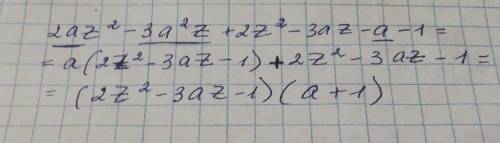 2az² - 3a²z + 2z² - 3az - a - 1 =
= a(2z² - 3az - 1) + 2z² - 3az - 1 =
= (2z² - 3az - 1)(a + 1)